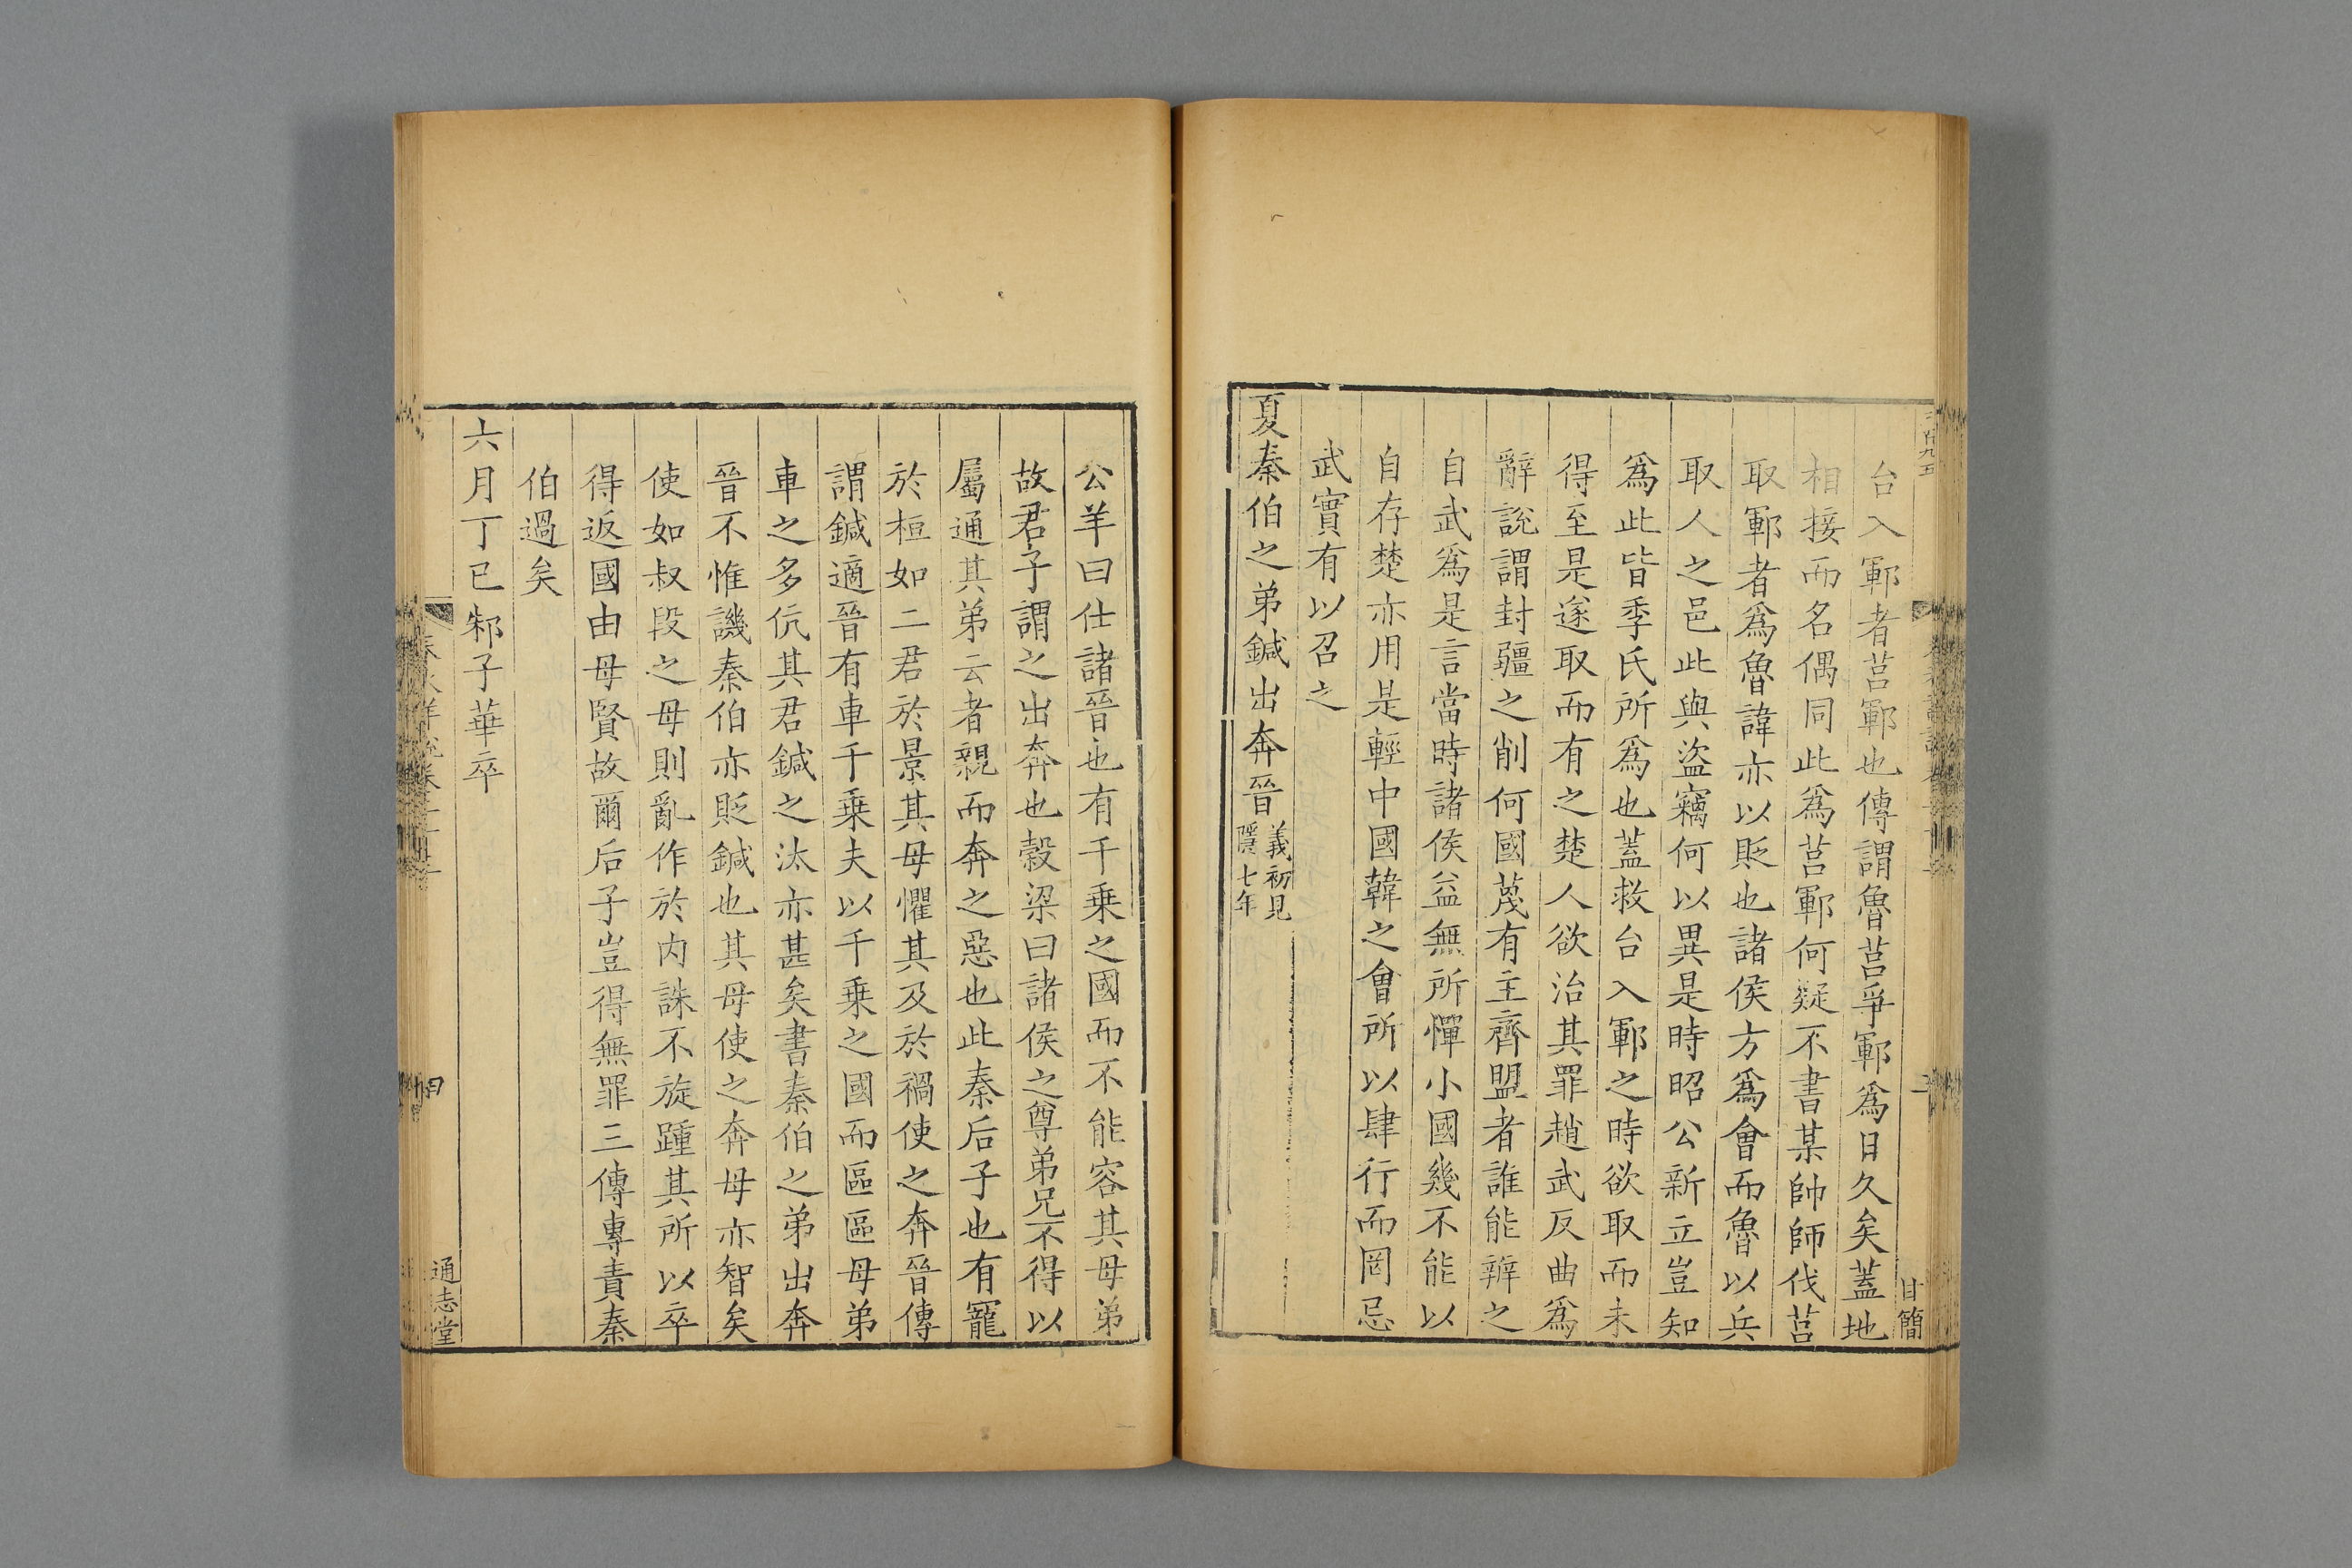 台入鄆者莒鄆也傳謂魯莒爭鄆爲日久矣蓋地
相接而名偶同此爲莒鄆何疑不書某帥師伐莒
取鄆者爲魯諱亦以貶也諸侯方爲會而魯以兵
取人之邑此與盜竊何以異是時昭公新立豈知
爲此皆季氏所爲也蓋救台入鄆之時欲取而未
得至是遂取而有之楚人欲治其罪趙武反曲爲
辭說謂封疆之削何國蔑有主齊盟者誰能辨之
自武爲是言當時諸侯益無所憚小國幾不能以
自存楚亦用是輕中國韓之會所以肆行而罔忌
武實有以召之
夏秦伯之弟鍼出奔晉義初見隱七年
甘簡
公羊曰仕諸晉也有千乗之國而不能容其母弟
故君子謂之出奔也穀梁曰諸侯之尊弟兄不得以
屬通其弟云者親而奔之惡也此秦后子也有寵
於桓如二君於景其母懼其及於禍使之奔晉傳
謂鍼適晉有車千乗夫以千乗之國而區區母弟
車之多伉其君鍼之汰亦甚矣書秦伯之弟出奔
晉不惟譏秦伯亦貶鍼也其母使之奔母亦智矣
使如叔段之母則亂作於内誅不旋踵其所以卒
得返國由母賢故爾后子豈得無罪三傳專責秦
伯過矣
六月丁巳邾子華卒
通志堂